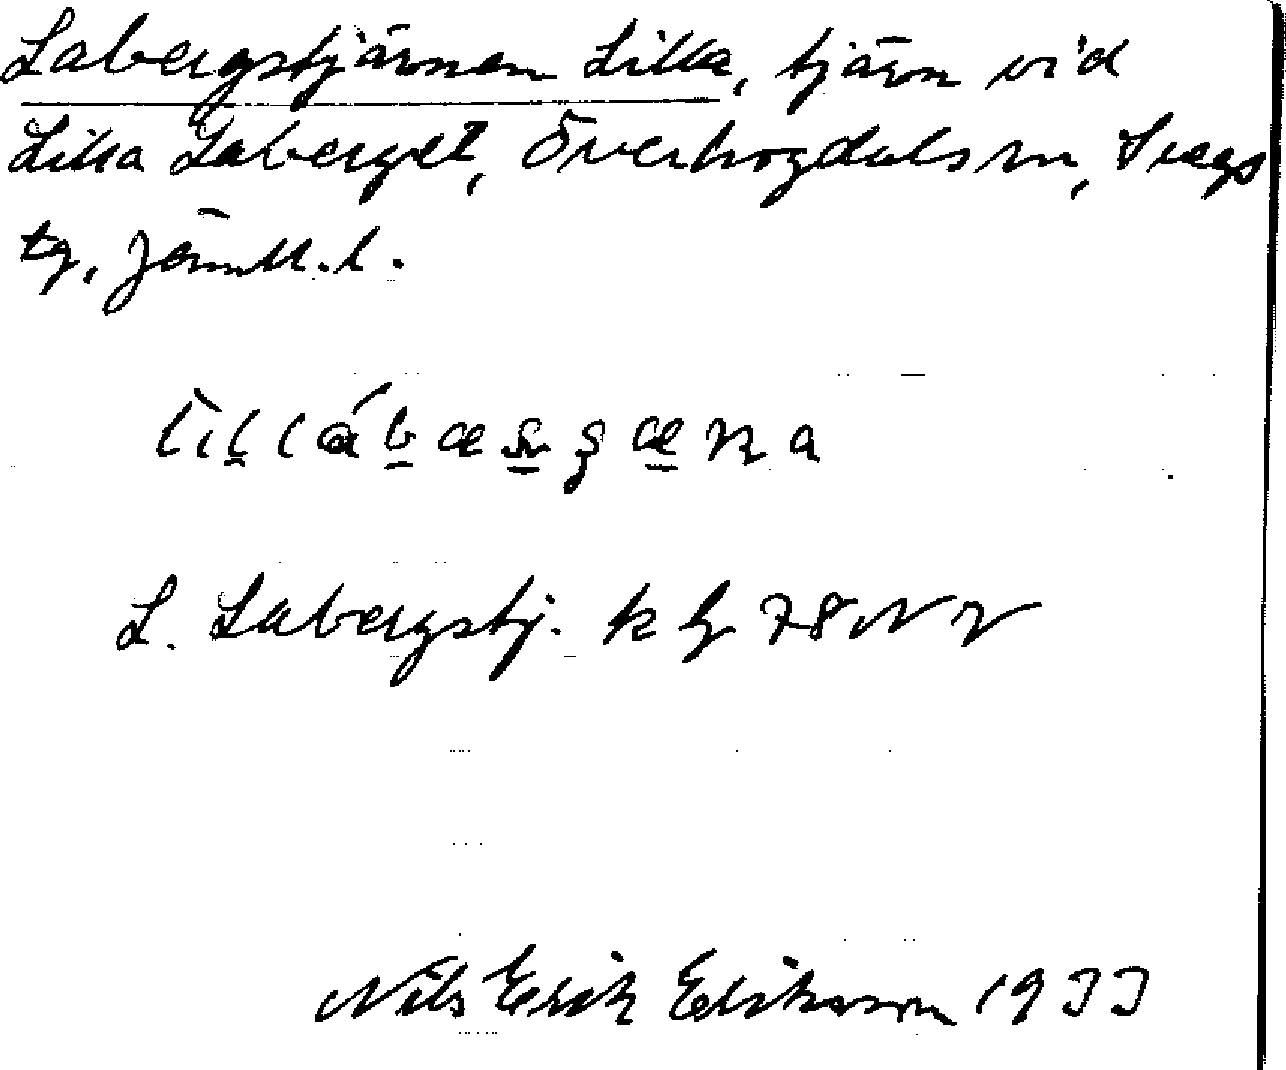 Labergstjärnen Lilla, tjärn vid
Lilla Laberget, Överhogdals sn, Svegs
tg, Jämtl. l.
L. Labergstj. k bl 78 NV
Nils Erik Eriksson 1933